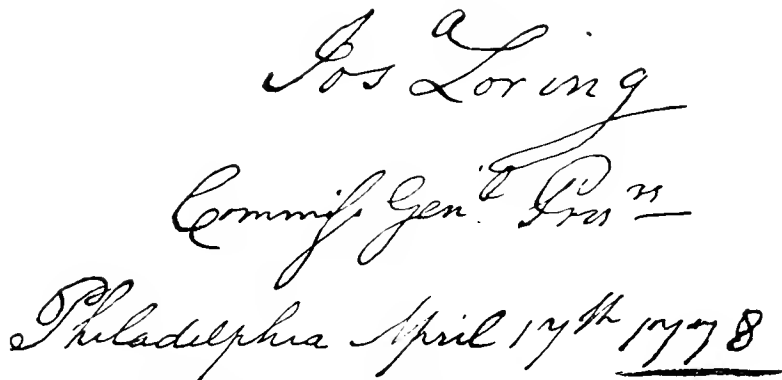 Josa Loring
Commiss. Genl. Prisrs
Philadelphia April 17th 1778